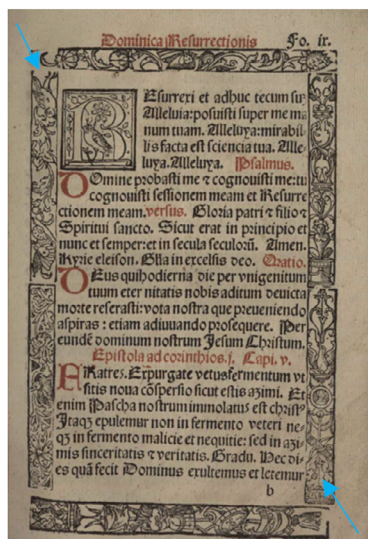 Dominica Resurrectionis Fo. ix.
REsurrexi et adhuc tecum suz
Alleluia:posuisti super me ma
num tuam. Alleluya:mirabil
lis facta est sciencia tua. Alle
luya. Alleluya. Psalmus.
DOmine probasti me ⁊ cognouisti me:tu
cognouisti sessionem meam et Resurre
ctionem meam.versus. Gloria patri ⁊ filio ⁊
Spiritui sancto. Sicut erat in principio et
nunc et semper:et in secula seculorū. Amen.
Kyrie eleison. Gl̄ia in excelsis deo. Oratio.
DEus qui hodierna die per vnigenitum
tuum eternitatis nobis aditum deuicta
morte reserasti:vota nostra que preueniendo
aspiras : etiam adiuuando prosequere. Per
eundē dominum nostrum Jesum Christum.
Epistola ad corinthios.j. Capi. v.
FRatres. Expurgate vetus fermentum vt
sitis noua cōspersio sicut estis azimi. Et
enim Pascha nostrum immolatus est christꝰ
Itaqꝫ epulemur non in fermento veteri ne-
qꝫ in fermento malicie et nequitie: sed in azi-
mis sinceritatis ⁊ veritatis. Gradu. Hec di-
es quā fecit Dominus exultemus et letemur
b